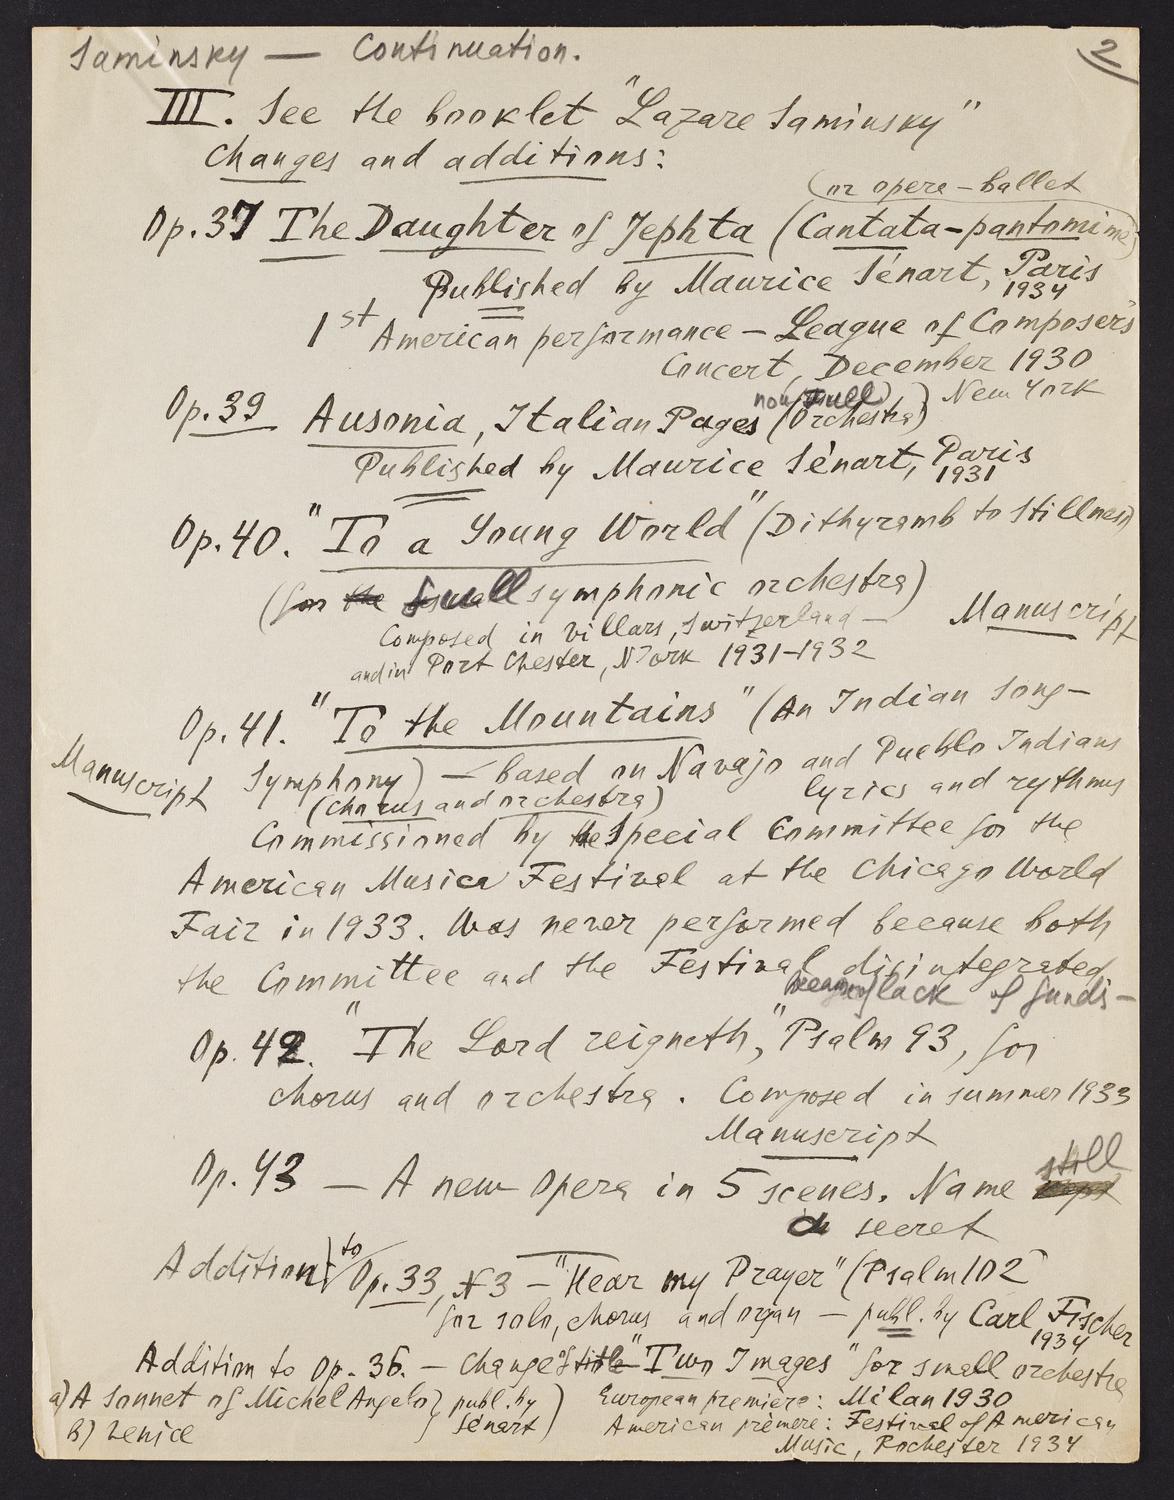 Saminsky — Continuation.
2
III. See the booklet "Lazare Saminsky"
Changes and additions:
(or opera-ballet
Op. 37 The Daughter of Jephta (Cantata-pantomime)
Published by Maurice Sénart, Paris
1934
1st American performance — League of Composers
Concert, December 1930
New York
Op. 39 Ausonia, Italian Pages (Orchestra)
now full
Published by Maurice Sénart, Paris
1931
Op. 40. "To a Young World" (Dithyramb to Stillness)
(for the small symphonic orchestra)
Manuscript
Composed in Villars, Switzerland —
and in Port Chester, N York 1931-1932
Op. 41. "To the Mountains" (An Indian Song-
Manuscript
Symphony) — based on Navajo and Pueblo Indians
(chorus and orchestra)
lyrics and rythmus
Commissioned by the Special Committee for the
American Musica Festival at the Chicago World
Fair in 1933. Was never performed because both
the Committee and the Festival disintegrated
lack of funds —
Op. 42. "The Lord reigneth," Psalm 93, for
chorus and orchestra. Composed in summer 1933
Manuscript
Op. 43 — A new Opera in 5 scenes. Name still
a secret
Addition to Op. 33, N3 — "Hear my Prayer" (Psalm 102
for solo, chorus and organ — publ. by Carl Fischer
1934
Addition to Op. 36. — Change of title "Two Images" for small orchestra
a) A Sonnet of Michel Angelo } publ. by ) European première: Milan 1930
b) Venice } Sénart ) American prèmere: Festival of American
Music, Rochester 1934